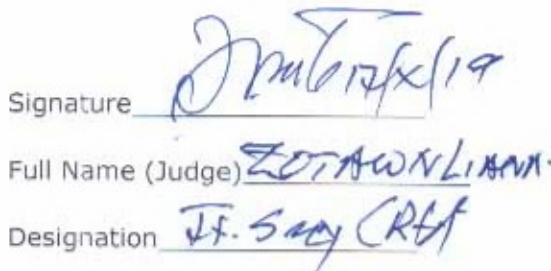 Signature 17/X/19
Full Name (Judge) ZOTAWNLIANA.
Designation Jt. Secy